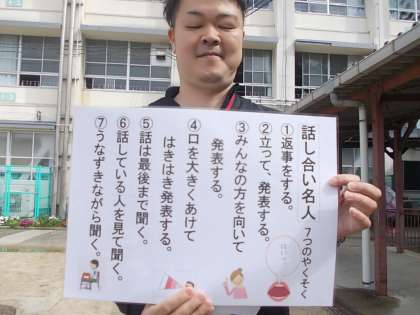 話し合い名人 7つのやくそく
①返事をする。
②立って、発表する。
③みんなの方を向いて
発表する。
④口を大きくあけて
はきはき発表する。
⑤話は最後まで聞く。
⑥話している人を見て聞く。
⑦うなずきながら聞く。